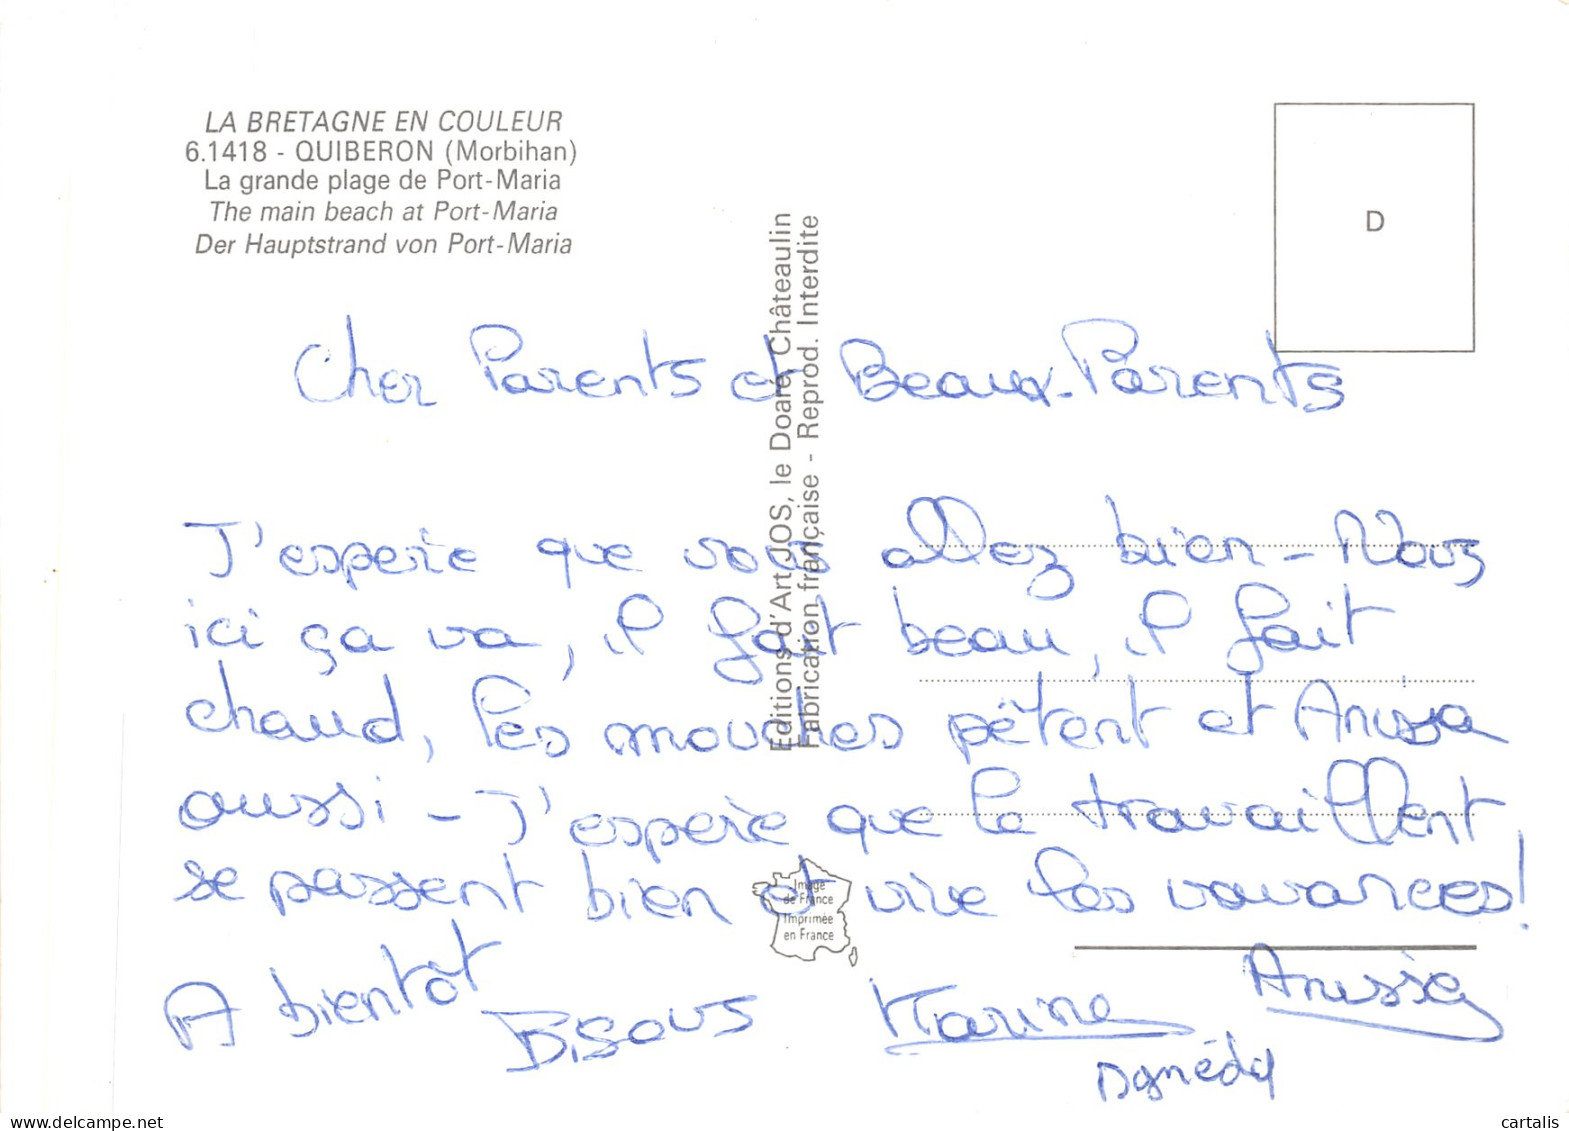 LA BRETAGNE EN COULEUR
6.1418 - QUIBERON (Morbihan)
La grande plage de Port-Maria
The main beach at Port-Maria
Der Hauptstrand von Port-Maria
D
Editions d'Art JOS, le Doaré, Châteaulin
Fabrication française - Reprod. Interdite
Cher Parents et Beaux-Parents
J'esperie que vous allez bien - Nous
ici ça va, il fait beau, il fait
chaud, les mouches pètent et Anissa
aussi - J'esperie que le travaillent
se passent bien et vive les vavances!
Image
de France
Imprimée
en France
A bientôt
Bisous
Karine
Anissa
cartalis